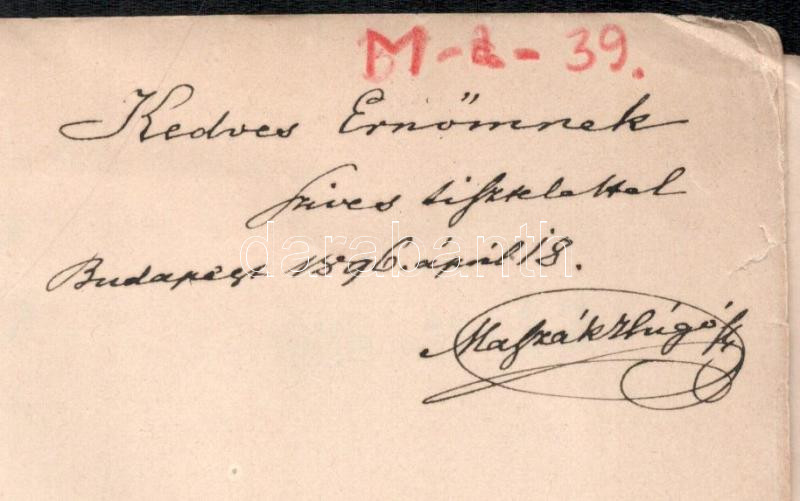 M-2-39.
Kedves Ernőmnek
szives tisztelettel
Budapest 1896. ápril 18.
Maszák Hugó
darabanth